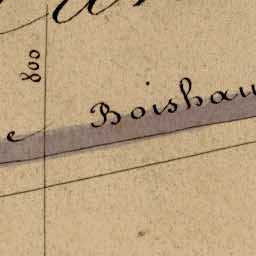 800
e Boishau